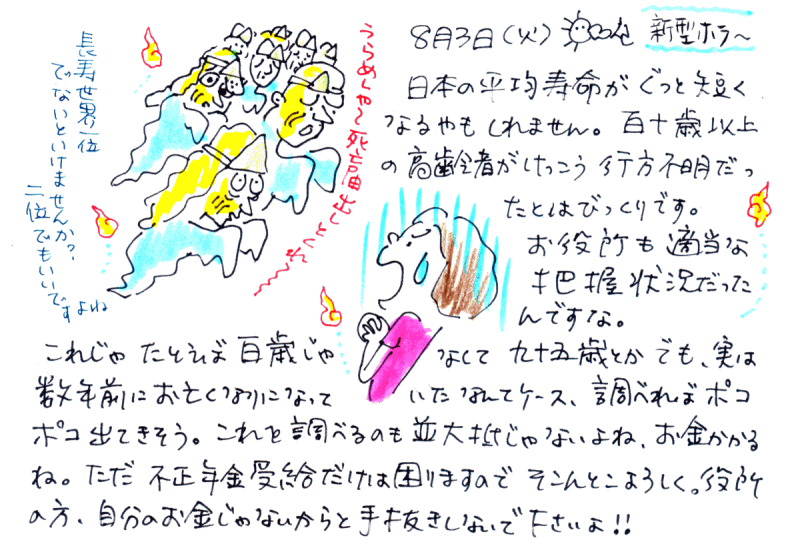 8月3日(火)
新型ホラ〜
日本の平均寿命がぐっと短く
なるやもしれません。百十歳以上
の高齢者がけっこう行方不明だっ
たとはびっくりです。
お役所も適当な
把握状況だった
んですな。
これじゃたとえば百歳じゃなくて九十五歳とかでも、実は
数年前にお亡くなりになっていたなんてケース、調べればポコ
ポコ出てきそう。これを調べるのも並大抵じゃないよね、お金かかる
ね。ただ不正年金受給だけは困りますのでそこんとこよろしく。役所
の方、自分のお金じゃないからと手抜きしないで下さいよ!!
うらめしや〜死亡届出しとくれ〜
長寿世界一位
でないといけませんか?
二位でもいいです
よね